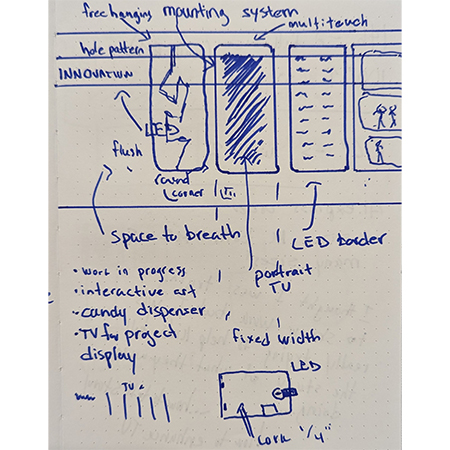 free hanging mounting system
multitouch
hole pattern
INNOVATION
LED
flush
round
corner
space to breath
LED border
portrait
TV
• work in progress
• interactive art
• candy dispenser
• TV for project
display
fixed width
LED
TV
cork 1/4"